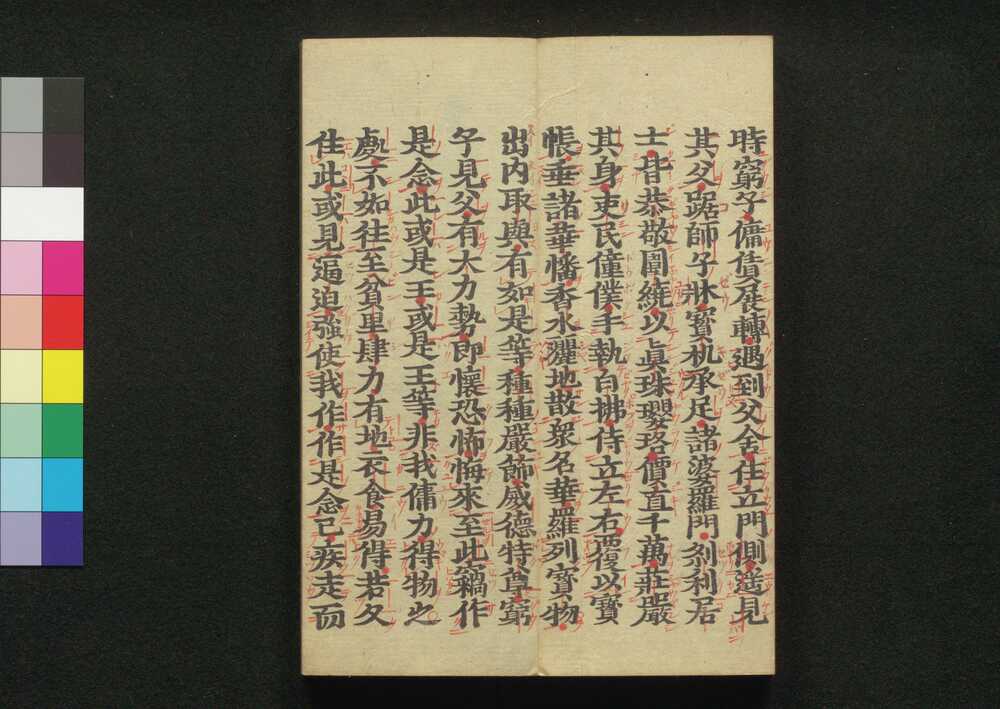 時窮子傭賃展轉遇到父舍住立門側遥見
其父踞師子牀寶机承足諸婆羅門刹利居
士皆恭敬圍繞以眞珠瓔珞價直千萬莊嚴
其身吏民僮僕手執白拂侍立左右覆以寶
帳垂諸華幡香水灑地散衆名華羅列寶物
出内取與有如是等種種嚴飾威德特尊窮
子見父有大力勢即懷恐怖悔來至此竊作
是念此或是王或是王等非我傭力得物之
處不如往至貧里肆力有地衣食易得若久
住此或見逼迫強使我作作是念已疾走而